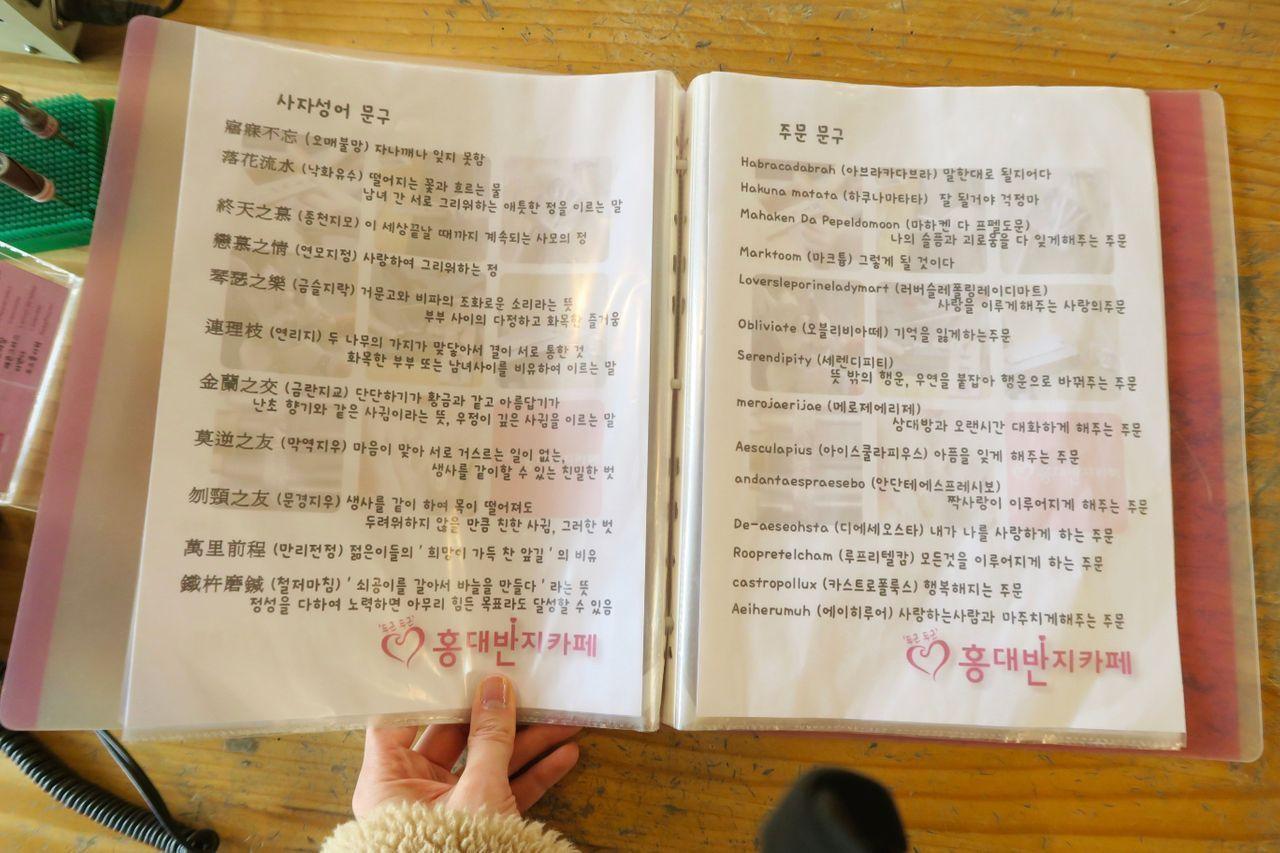 사자성어 문구
寤寐不忘 (오매불망) 자나깨나 잊지 못함
落花流水 (낙화유수) 떨어지는 꽃과 흐르는 물
남녀 간 서로 그리워하는 애틋한 정을 이르는 말
終天之慕 (종천지모) 이 세상끝날 때까지 계속되는 사모의 정
戀慕之情 (연모지정) 사랑하여 그리워하는 정
琴瑟之樂 (금슬지락) 거문고와 비파의 조화로운 소리라는 뜻
부부 사이의 다정하고 화목한 즐거움
連理枝 (연리지) 두 나무의 가지가 맞닿아서 결이 서로 통한 것
화목한 부부 또는 남녀사이를 비유하여 이르는 말
金蘭之交 (금란지교) 단단하기가 황금과 같고 아름답기가
난초 향기와 같은 사귐이라는 뜻, 우정이 깊은 사귐을 이르는 말
莫逆之友 (막역지우) 마음이 맞아 서로 거스르는 일이 없는,
생사를 같이할 수 있는 친밀한 벗
刎頸之友 (문경지우) 생사를 같이 하여 목이 떨어져도
두려워하지 않을 만큼 친한 사귐, 그러한 벗
萬里前程 (만리전정) 젊은이들의 ' 희망이 가득 찬 앞길 ' 의 비유
鐵杵磨鍼 (철저마침) ' 쇠공이를 갈아서 바늘을 만들다 ' 라는 뜻
정성을 다하여 노력하면 아무리 힘든 목표라도 달성할 수 있음
'두근 두근'
홍대반지카페
주문 문구
Habracadabrah (아브라카다브라) 말한대로 될지어다
Hakuna matata (하쿠나마타타) 잘 될거야 걱정마
Mahaken Da Pepeldomoon (마하켄 다 프펠도문)
나의 슬픔과 괴로움을 다 잊게해주는 주문
Marktoom (마크툽) 그렇게 될 것이다
Loversleporineladymart (러버슬레폴링레이디마트)
사랑을 이루게해주는 사랑의주문
Obliviate (오블리비아떼) 기억을 잃게하는주문
Serendipity (세렌디피티)
뜻 밖의 행운, 우연을 붙잡아 행운으로 바꿔주는 주문
merojaerijae (메로제에리제)
상대방과 오랜시간 대화하게 해주는 주문
Aesculapius (아이스쿨라피우스) 아픔을 잊게 해주는 주문
andantaespraesebo (안단테에스프레시보)
짝사랑이 이루어지게 해주는 주문
De-aeseohsta (디에세오스타) 내가 나를 사랑하게 하는 주문
Roopretelcham (루프리텔캄) 모든것을 이루어지게 하는 주문
castropollux (카스트로폴룩스) 행복해지는 주문
Aeiherumuh (에이히루어) 사랑하는사람과 마주치게해주는 주문
'두근 두근'
홍대반지카페